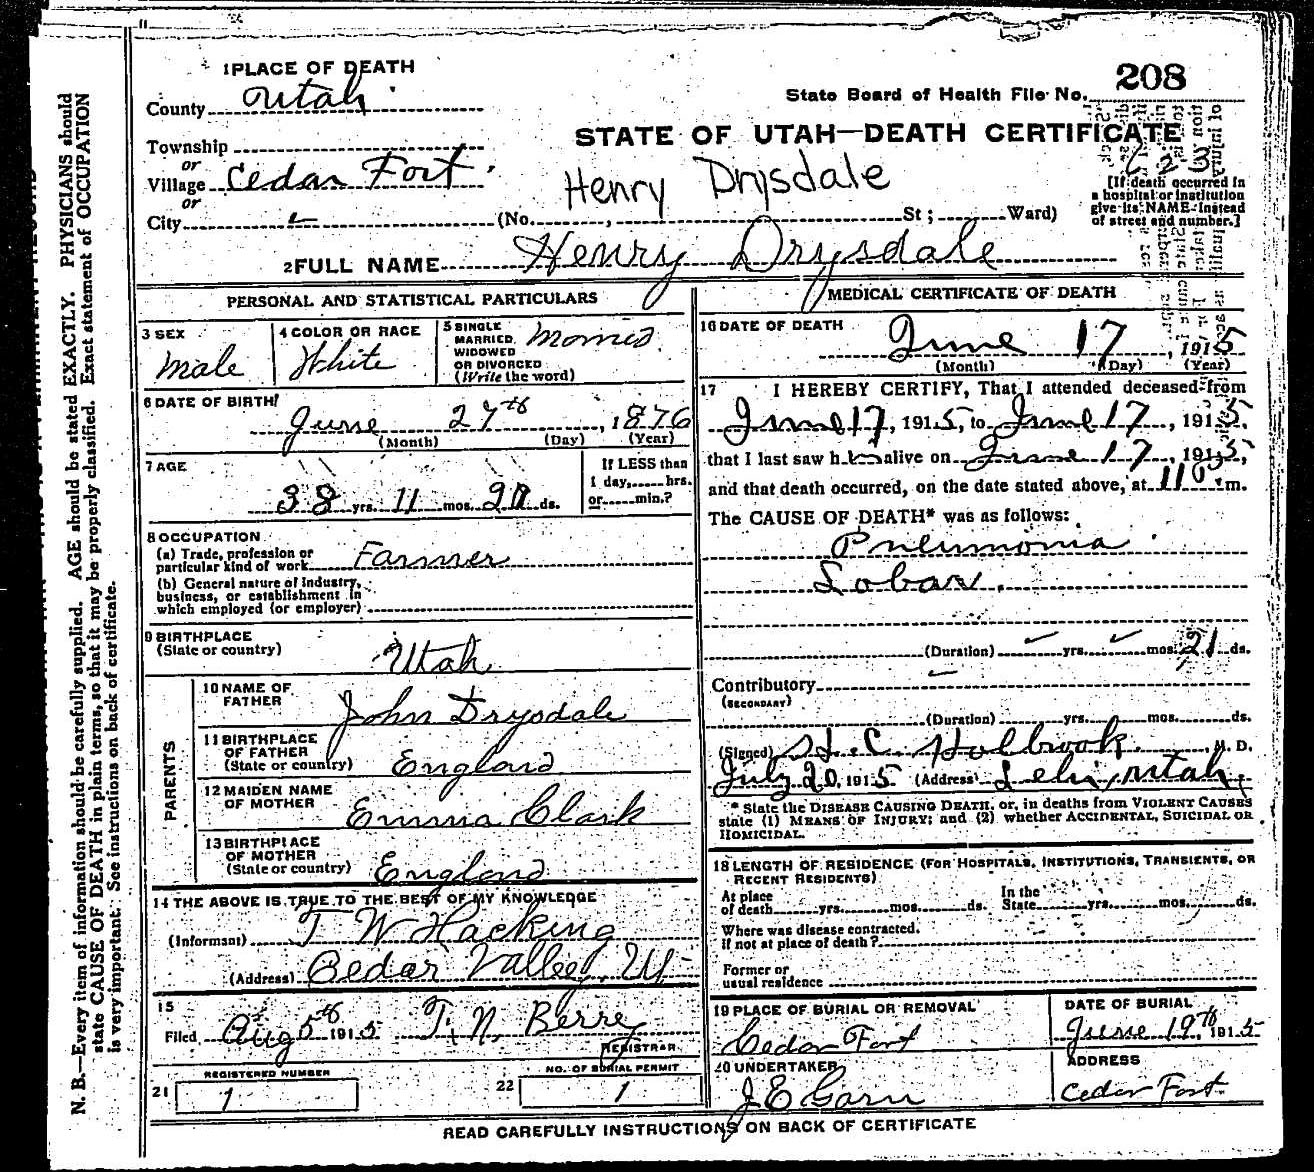 1 PLACE OF DEATH
County Utah
208
State Board of Health File No.
STATE OF UTAH—DEATH CERTIFICATE
Township
or
Village Cedar Fort
or
City
Henry Drysdale
(No. , St; Ward)
[If death occurred in
a hospital or institution
give its NAME instead
of street and number.]
2 FULL NAME Henry Drysdale
PERSONAL AND STATISTICAL PARTICULARS
3 SEX
Male
4 COLOR OR RACE
White
5 SINGLE
MARRIED,
WIDOWED
OR DIVORCED
(Write the word)
6 DATE OF BIRTH
June 27th, 1876
(Month) (Day) (Year)
7 AGE
38 yrs. 11 mos. 20 ds.
If LESS than
1 day, hrs.
or min.?
8 OCCUPATION
(a) Trade, profession or
particular kind of work Farmer
(b) General nature of industry,
business, or establishment in
which employed (or employer)
9 BIRTHPLACE
(State or country) Utah
PARENTS
10 NAME OF
FATHER John Drysdale
11 BIRTHPLACE
OF FATHER
(State or country) England
12 MAIDEN NAME
OF MOTHER Emma Clark
13 BIRTHPLACE
OF MOTHER
(State or country) England
14 THE ABOVE IS TRUE TO THE BEST OF MY KNOWLEDGE
(Informant) T W Hacking
(Address) Cedar Valley, Ut
15
Filed Aug 5th 1915 T. N. Berry
REGISTRAR
REGISTERED NUMBER
21 1
NO. OF BURIAL PERMIT
22 1
MEDICAL CERTIFICATE OF DEATH
16 DATE OF DEATH
June 17, 1915
(Month) (Day) (Year)
17 I HEREBY CERTIFY, That I attended deceased from
June 17, 1915, to June 17, 1915,
that I last saw him alive on June 17, 1915,
and that death occurred, on the date stated above, at m.
The CAUSE OF DEATH* was as follows:
Pneumonia
Lobar.
(Duration) yrs. mos. 21 ds.
Contributory
(SECONDARY)
(Duration) yrs. mos. ds.
(Signed) H. C. Holbrook, M. D.
July 20, 1915 (Address) Lehi, Utah,
* State the DISEASE CAUSING DEATH, or, in deaths from VIOLENT CAUSES
state (1) MEANS OF INJURY; and (2) whether ACCIDENTAL, SUICIDAL OR
HOMICIDAL.
18 LENGTH OF RESIDENCE (FOR HOSPITALS, INSTITUTIONS, TRANSIENTS, OR
RECENT RESIDENTS)
At place
of death yrs. mos. ds.
In the
State yrs. mos. ds.
Where was disease contracted,
if not at place of death?
Former or
usual residence
19 PLACE OF BURIAL OR REMOVAL
Cedar Fort
DATE OF BURIAL
June 19th, 1915
20 UNDERTAKER
J E Garn
ADDRESS
Cedar Fort
READ CAREFULLY INSTRUCTIONS ON BACK OF CERTIFICATE
N. B.—Every item of information should be carefully supplied. AGE should be stated EXACTLY. PHYSICIANS should
state CAUSE OF DEATH in plain terms, so that it may be properly classified. Exact statement of OCCUPATION
is very important. See instructions on back of certificate.